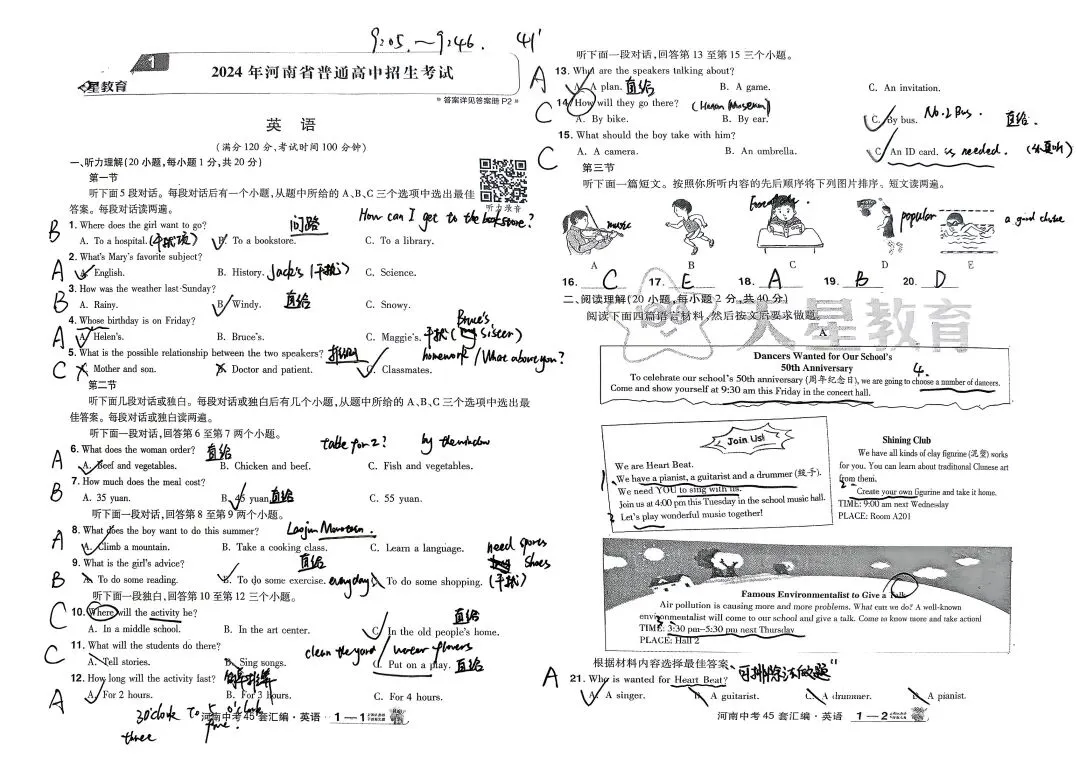 9:05.~9:46. 41'
1
星教育
2024年河南省普通高中招生考试
»答案详见答案册 P2»
英 语
(满分120分,考试时间100分钟)
一、听力理解(20小题,每小题1分,共20分)
第一节
听下面5段对话。每段对话后有一个小题,从题中所给的A、B、C三个选项中选出最佳
答案。每段对话读两遍。
听力录音
问路 How can I get to the bookstore?
B 1. Where does the girl want to go?
A. To a hospital. (干扰项) B. To a bookstore. C. To a library.
A 2. What's Mary's favorite subject?
A. English. B. History. Jack's (干扰) C. Science.
B 3. How was the weather last Sunday?
A. Rainy. B. Windy. 直给 C. Snowy.
A 4. Whose birthday is on Friday?
A. Helen's. B. Bruce's. C. Maggie's. 干扰 ( Bruce's sister)
C 5. What is the possible relationship between the two speakers? homework / What about you?
A. Mother and son. B. Doctor and patient. C. Classmates.
第二节
听下面几段对话或独白。每段对话或独白后有几个小题,从题中所给的A、B、C三个选项中选出最
佳答案。每段对话或独白读两遍。
听下面一段对话,回答第6至第7两个小题。
table for 2? by the window
A 6. What does the woman order? 直给
A. Beef and vegetables. B. Chicken and beef. C. Fish and vegetables.
B 7. How much does the meal cost?
A. 35 yuan. B. 45 yuan. 直给 C. 55 yuan.
听下面一段对话,回答第8至第9两个小题。
A 8. What does the boy want to do this summer? Laojun Mountain.
A. Climb a mountain. B. Take a cooking class. C. Learn a language.
need sports shoes (干扰)
B 9. What is the girl's advice? 直给
A. To do some reading. B. To do some exercise. everyday C. To do some shopping.
听下面一段独白,回答第10至第12三个小题。
C 10. Where will the activity be? 直给
A. In a middle school. B. In the art center. C. In the old people's home.
C 11. What will the students do there? clean the yard / water flowers
A. Tell stories. B. Sing songs. C. Put on a play. 直给
A 12. How long will the activity last? 简单推算
A. For 2 hours. B. For 3 hours. C. For 4 hours.
3 o'clock to 5 o'clock
three five.
河南中考45套汇编·英语 1—1
听下面一段对话,回答第13至第15三个小题。
A 13. What are the speakers talking about?
A. A plan. 直给 B. A game. C. An invitation.
C 14. How will they go there? (Henan Museum)
A. By bike. B. By car. C. By bus. No.2 Bus. 直给.
15. What should the boy take with him?
C A. A camera. B. An umbrella. C. An ID card. is needed.
第三节
听下面一篇短文。按照你所听内容的先后顺序将下列图片排序。短文读两遍。
music popular a good choice
A B C D E
16. C 17. E 18. A 19. B 20. D
二、阅读理解(20小题,每小题2分,共40分)
阅读下面四篇语言材料,然后按文后要求做题。
大星教育
A
Dancers Wanted for Our School's
50th Anniversary
4.
To celebrate our school's 50th anniversary (周年纪念日), we are going to choose a number of dancers.
Come and show yourself at 9:30 am this Friday in the concert hall.
Join Us!
We are Heart Beat.
We have a pianist, a guitarist and a drummer (鼓手).
We need YOU to sing with us.
Join us at 4:00 pm this Tuesday in the school music hall.
Let's play wonderful music together!
Shining Club
We have all kinds of clay figurine (泥塑) works
for you. You can learn about traditional Chinese art
from them.
Create your own figurine and take it home.
TIME: 9:00 am next Wednesday
PLACE: Room A201
Famous Environmentalist to Give a Talk
Air pollution is causing more and more problems. What can we do? A well-known
environmentalist will come to our school and give a talk. Come to know more and take action!
TIME: 3:30 pm–5:30 pm next Thursday
PLACE: Hall 2
根据材料内容选择最佳答案。 可排除法做题
A 21. Who is wanted for Heart Beat?
A. A singer. B. A guitarist. C. A drummer. D. A pianist.
河南中考45套汇编·英语 1—2